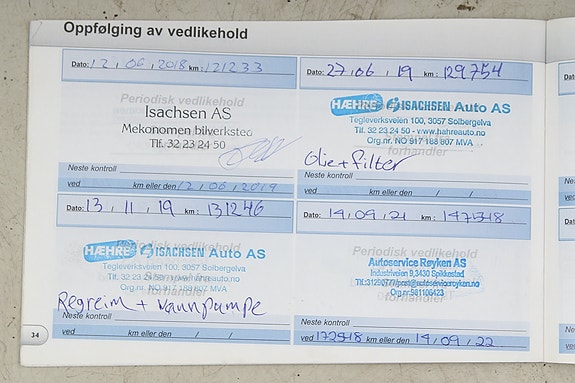 Oppfølging av vedlikehold
Dato: 12 , 06 , 2018 km : 121233
Periodisk vedlikehold
Isachsen AS
Mekonomen bilverksted
Tlf. 32 23 24 50
Neste kontroll
ved km eller den 12 / 06 / 2019
Dato: 27 , 06 , 19 km : 129754
HÆHRE ISACHSEN Auto AS
Tegleverksveien 100, 3057 Solbergelva
Tlf. 32 23 24 50 - www.hahreauto.no
Org. nr. NO 917 183 807 MVA
forhandler
Olje + filter
Neste kontroll
ved km eller den / /
Dato: 13 , 11 , 19 km : 131246
Periodisk vedlikehold
HÆHRE ISACHSEN Auto AS
Tegleverksveien 100, 3057 Solbergelva
Tlf. 32 23 24 50
Org. nr. NO 917 183 807 MVA
forhandler
Regreim + vannpumpe
Neste kontroll
ved km eller den / /
Dato: 14 , 09 , 21 km :
Periodisk vedlikehold
Autoservice Røyken AS
Industriveien 9,3430 Spikkestad
forhandler
Neste kontroll
ved km eller den 14 / 09 / 22
34